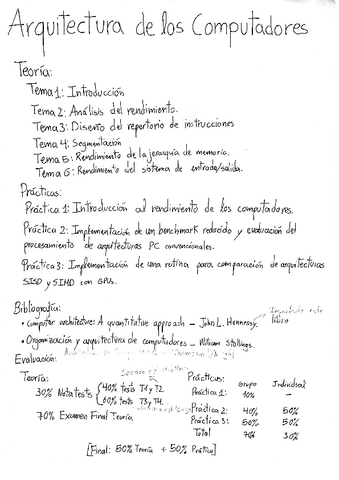 Arquitectura de los Computadores
Teoría:
Tema 1: Introducción
Tema 2: Análisis del rendimiento.
Tema 3: Diseño del repertorio de instrucciones
Tema 4: Segmentación
Tema 5: Rendimiento de la jerarquía de memoria.
Tema 6: Rendimiento del sistema de entrada/salida.
Prácticas:
Práctica 1: Introducción al rendimiento de los computadores.
Práctica 2: Implementación de un benchmark reducido y evaluación del
procesamiento de arquitecturas PC convencionales.
Práctica 3: Implementación de una rutina para comparación de arquitecturas
SISD y SIMD con GPUs.
Bibliografía:
Importante este
libro
• Computer architecture: A quantitative approach - John L. Hennessy.
• Organización y arquitectura de computadores - William Stallings.
Evaluación:
Teoría:
30% Nota tests { 40% tests T1 y T2.
60% tests T3 y T4.
70% Examen Final Teoría
Prácticas: Grupo Individual
Práctica 1: 10% -
Práctica 2: 40% 50%
Práctica 3: 50% 50%
Total 70% 30%
[Final: 50% Teoría + 50% Prática]